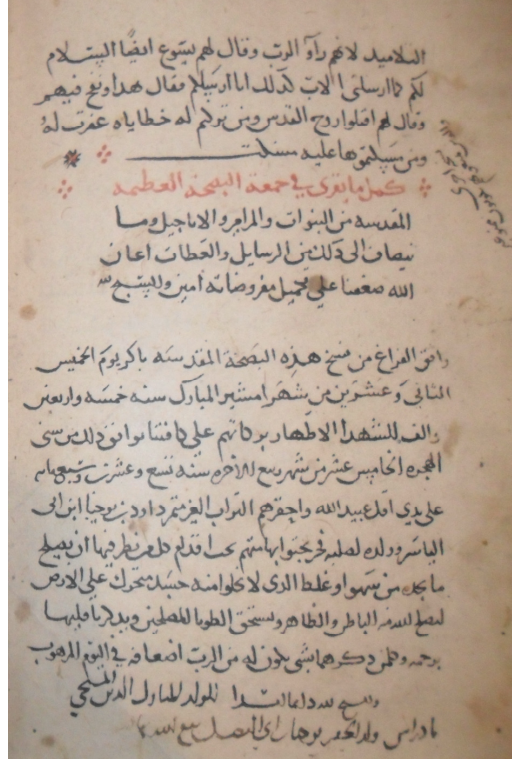 التلاميد لانهم رآوا الرب وقال لهم يسوع ايضا السلام
لكم كما ارسلنى الاب كدلك انا ارسلكم فقال هدا ونفخ فيهم
وقال لهم اقبلوا روح القدس ومن تركتم له خطاياه غفرت له
ومن مسكتموها عليه مسكت
كمل ما يقرى في جمعة البصخة العظيمه
المقدسه من النبوات والمزامير والاناجيل وما
يضاف الى ذلك من الرسايل والعظات اعان
الله ضعفنا علي تكميل مفروضاته امين والسبح لله
وافق الفراغ من نسخ هذه البصخة المقدسه باكر يوم الخميس
الثاني وعشرين من شهر امشير المبارك سنه خمسه واربعين
والف للشهدا الاطهار بركاتهم علي كافتنا توافق ذلك من سنى
الهجره الخامس عشر من شهر ربيع الاخره سنه تسع وعشرين وسبعمايه
علي يدي اقل عبيد الله واحقرهم التراب داود بن يوحنا ابن ابى
الياسر ولده لصلبه تحت اقدام كل من نظر فيها ان يصلح
ما يجد من سهو او غلط الدى لا يخلوا منه جسد متحرك علي الارض
الله الباطن والظاهر ويستحق الطوبا للمصلحين ويدكر ناقلها
برحمه وكلمن دكرها بشى يكون له من الرب اضعافه في اليوم المرهوب
والسبح لله دايما ابدا للولد المبارك